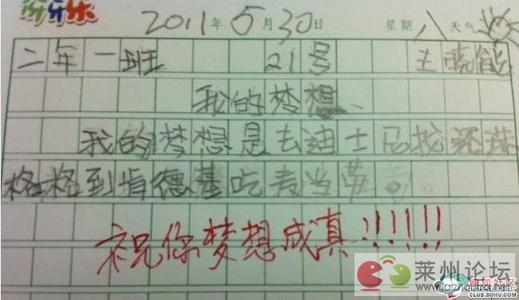 2011年5月30日 星期八 天气
二年一班 21号 王晓能
我的梦想
我的梦想是去迪士尼找还珠
格格到肯德基吃麦当劳。
祝你梦想成真!!!!!!
莱州论坛